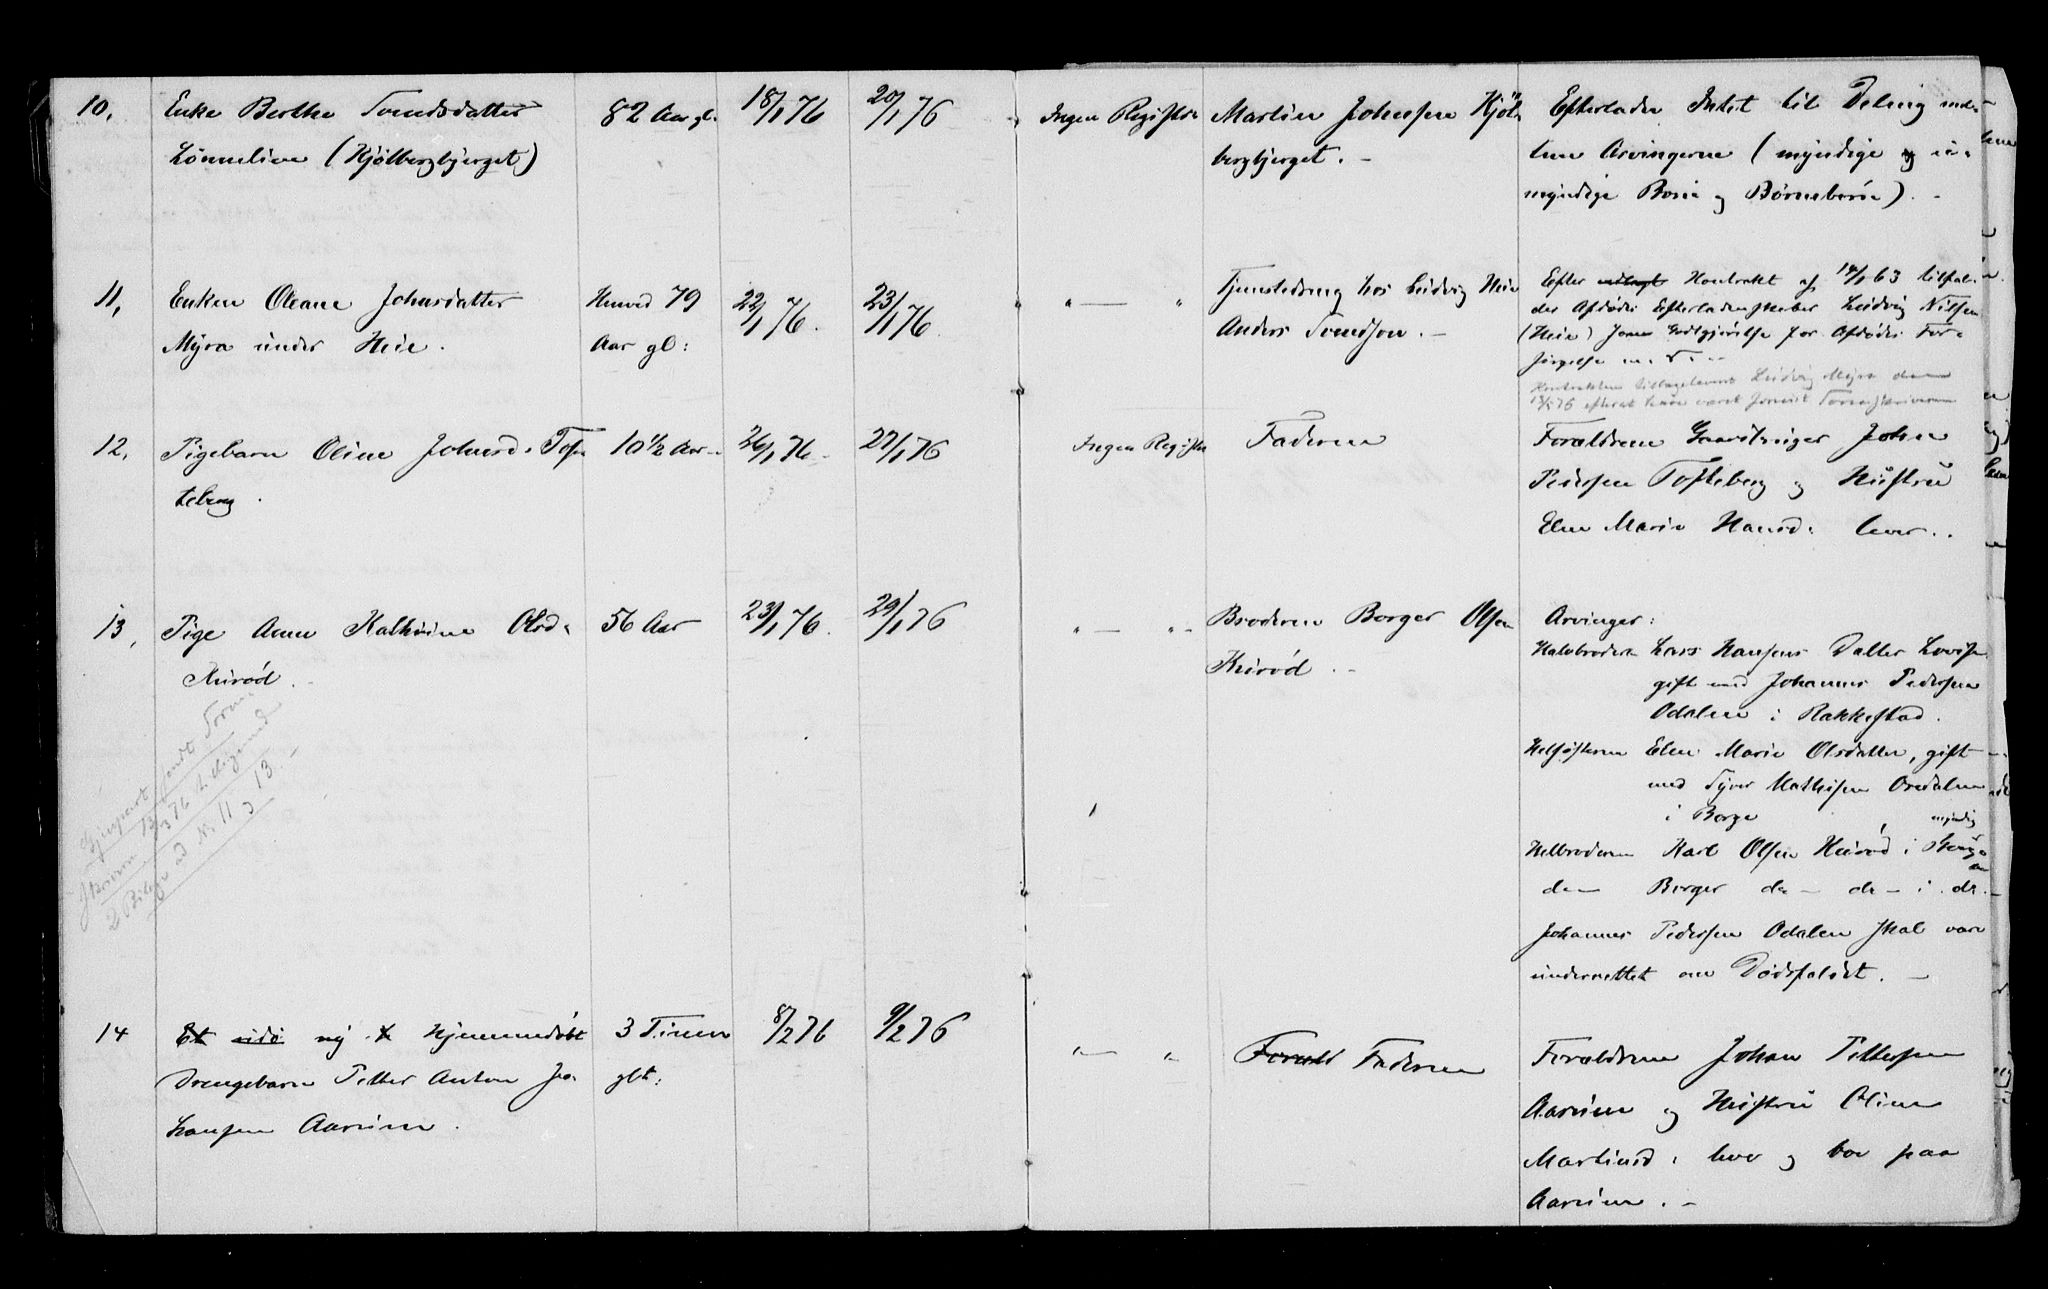 10.
Enke Berthe Svendsdatter
Lönnelien (Kjølbergbjerget)
82 Aar gl.
18/1 76
20/1 76
Ingen Registr
Martin Johnsen Kjöl-
bergbjerget. -
Efterlader Intet til Deling mel-
lem Arvingerne (myndige og u-
myndige Børn og Børnebørn). -
11,
Enken Oleane Johnsdatter
Myra under Heie.
Henved 79
Aar gl:
22/1 76.
23/1 76.
" — "
Ludvig Heie
Anders Svendsen. -
Efter Kontrakt af 14/1 63 tilfal-
der Afdødes Efterladenskaber Ludvig Nilsen
(Heie) som Godtgjørelse for Afdødes For-
sørgelse m. V. --
Kontrakten tilbageleveret Ludvig Myra den
efterat have været forevist Sorenskriveren
12,
Pigebarn Oline Johnsd. Tof-
teberg.
10 1/2 Aar -
26/1 76 -
27/1 76
Ingen Registr
Faderen
Forældrene Gaardbruger John
Pedersen Tofteberg og Hustru
Elen Marie Hansd: lever..
13,
Pige Anne Kathrine Olsd:
Huirød. -
56 Aar
23/1 76.
29/1 76
" — " -
Broderen Borger Olsen
Huirød. -
Arvinger:
Halvbroderen Lars Hansens Datter Lovise
gift med Johannes Pedersen
Odalen i Rakkestad.
Helsøsteren Elen Marie Olsdatter, gift
med Syver Mathisen Oredalen
i Borge
myndig
Helbroderen Karl Olsen Huirød i Borge
do - Borger do - do - i do. -
Johannes Pedersen Odalen skal være
underrettet om Dødsfaldet. -
Gjenpart sendt Soren-
skriveren 13/3 76 tilligemed
2 Bilage ad No 11 og 13. -
14
Et ny Hjemmedøbt
Drengebarn Petter Anton Jo-
hansen Aarum.
3 Timer
glt:
8/2 76
9/2 76
" — "
Foræld Faderen
Forældrene Johan Pettersen
Aarum og Hustru Oline
Martinsd. lever og bor paa
Aarum. -